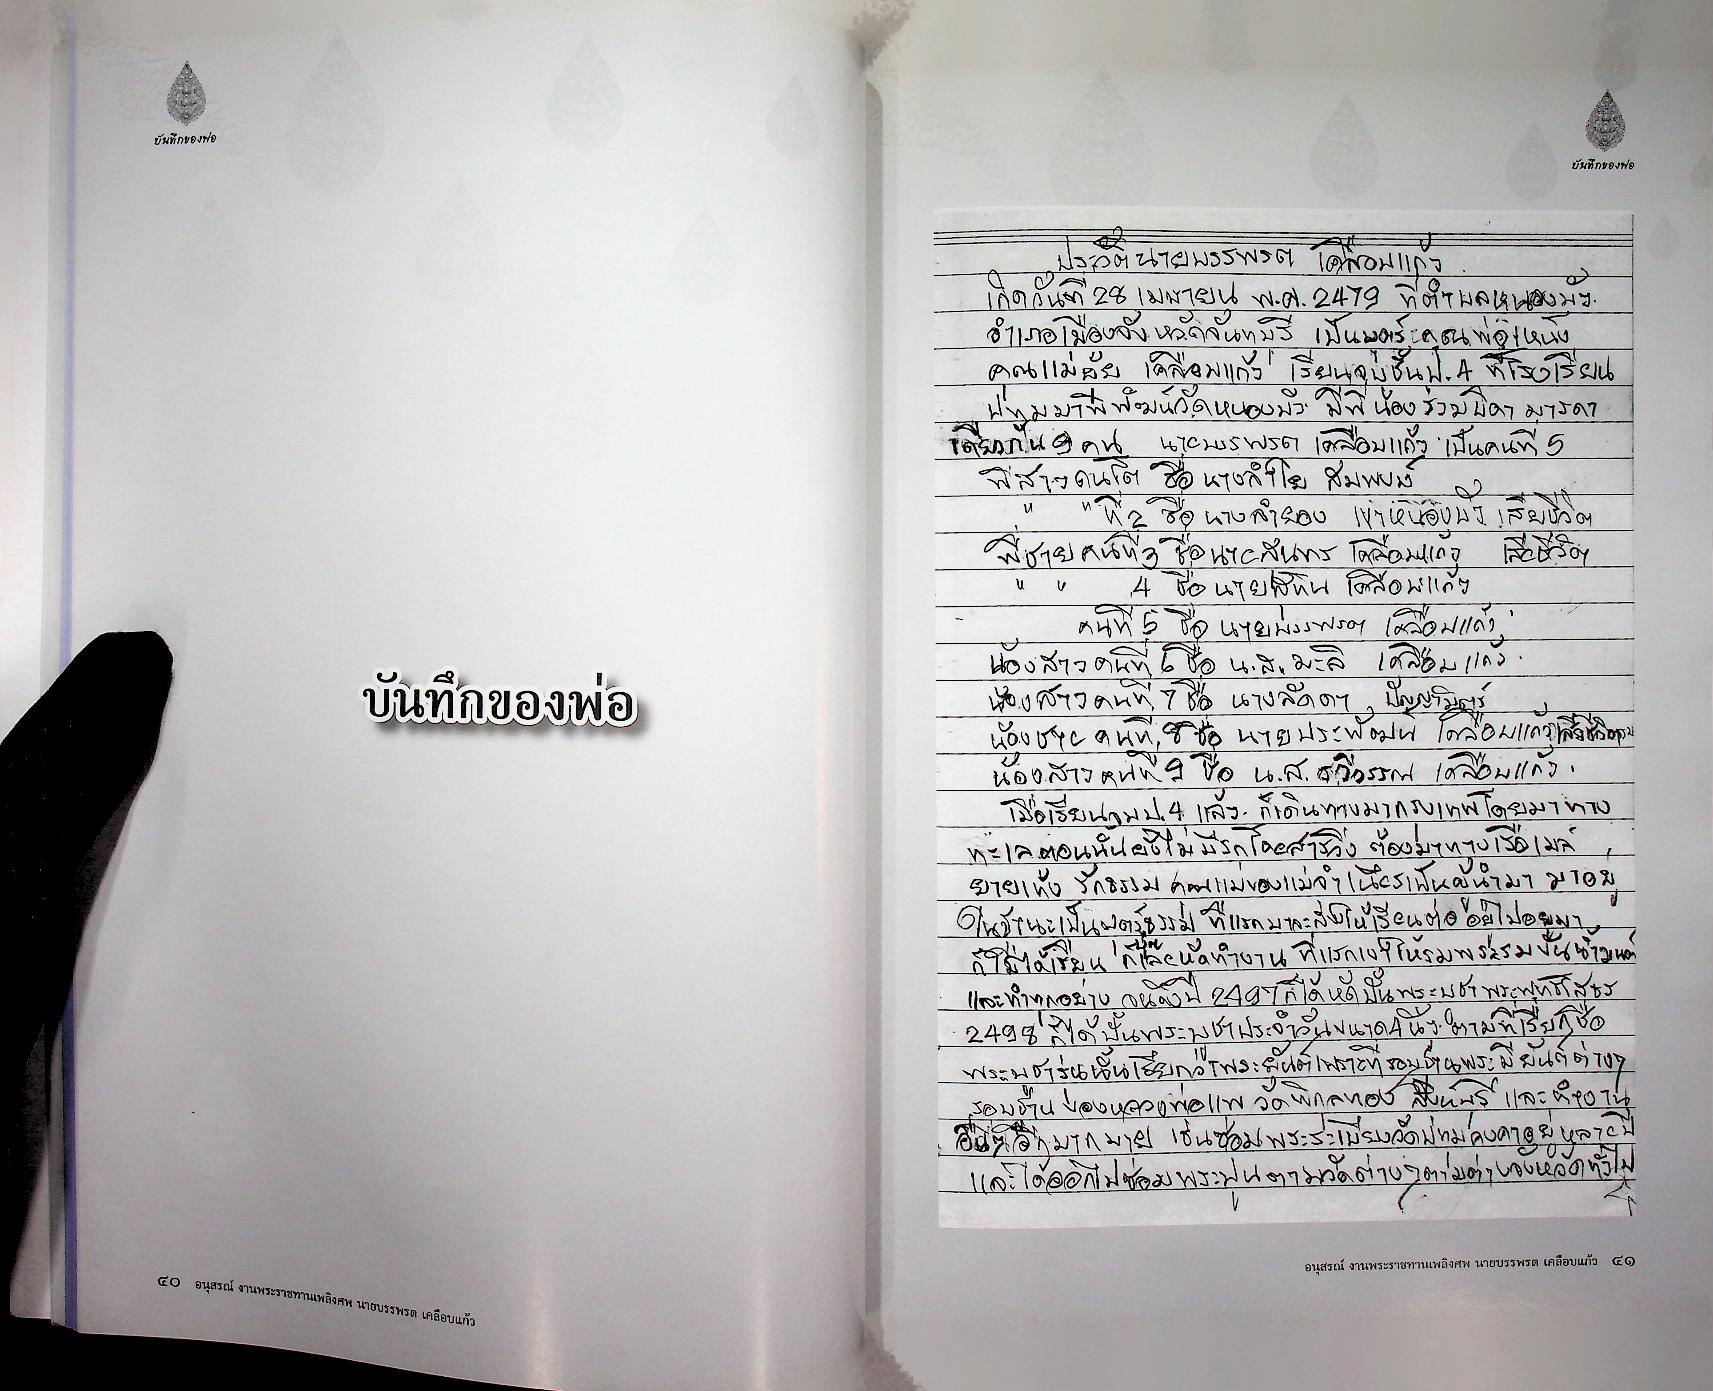 บันทึกของพ่อ
บันทึกของพ่อ
๔๐ อนุสรณ์ งานพระราชทานเพลิงศพ นายบรรพรต เคลือบแก้ว
บันทึกของพ่อ
ประวัตินายบรรพรต เคลือบแก้ว
เกิดวันที่ 28 เมษายน พ.ศ. 2479 ที่ตำบลหนองบัว
อำเภอเมืองจังหวัดจันทบุรี เป็นบุตร คุณพ่อ
คุณแม่ เคลือบแก้ว เรียนจบชั้นป.4 ที่โรงเรียน
วัดหนองบัว มีพี่น้องร่วมบิดา มารดา
เดียวกัน 9 คน นายบรรพรต เคลือบแก้ว เป็นคนที่ 5
พี่สาวคนโต ชื่อ นางลำไย
" " ที่ 2 ชื่อ นางลำยอง เสียชีวิต
พี่ชายคนที่ 3 ชื่อนาย เคลือบแก้ว เสียชีวิต
" " 4 ชื่อ นาย เคลือบแก้ว
คนที่ 5 ชื่อ นายบรรพรต เคลือบแก้ว
น้องสาวคนที่ 6 ชื่อ น.ส. มะลิ เคลือบแก้ว
น้องสาวคนที่ 7 ชื่อ นางลัดดา
น้องชายคนที่ 8 ชื่อ นายประพัฒน์ เคลือบแก้ว
น้องสาวคนที่ 9 ชื่อ น.ส. ฉวีวรรณ เคลือบแก้ว
เมื่อเรียนจบป.4 แล้ว ก็เดินทางมากรุงเทพโดยมาทาง
ทะเลตอนนั้นยังไม่มีรถโดยสารวิ่ง ต้องมาทางเรือเมล์
ยาย รักธรรม คุณแม่ของแม่ เป็นผู้นำมา มาอยู่
ในฐานะเป็นบุตรธรรม ที่แรกมาจะส่งให้เรียนต่อ อยู่ไปอยู่มา
ก็ไม่ได้เรียน ทำงาน ที่แรก
และทำทุกอย่าง จนถึงปี 2497 ก็ได้หัดปั้นพระบูชา พระพุทธโสธร
2498 ก็ได้ปั้นพระบูชาประจำวันขนาด 4 นิ้ว ตามที่เรียกชื่อ
พระบูชารุ่นนั้นเรียกว่าพระยันต์เพราะที่รอบฐานพระมียันต์ต่างๆ
รอบฐาน ของหลวงพ่อแพ วัดพิกุลทอง สิงห์บุรี และทำงาน
อื่นๆ อีกมากมาย เช่นซ่อมพระระเบียงวัดปทุมคงคาอยู่หลายปี
และได้ออกไปซ่อมพระปูนตามวัดต่างๆ ตามต่างจังหวัดทั่วไป
อนุสรณ์ งานพระราชทานเพลิงศพ นายบรรพรต เคลือบแก้ว ๔๑